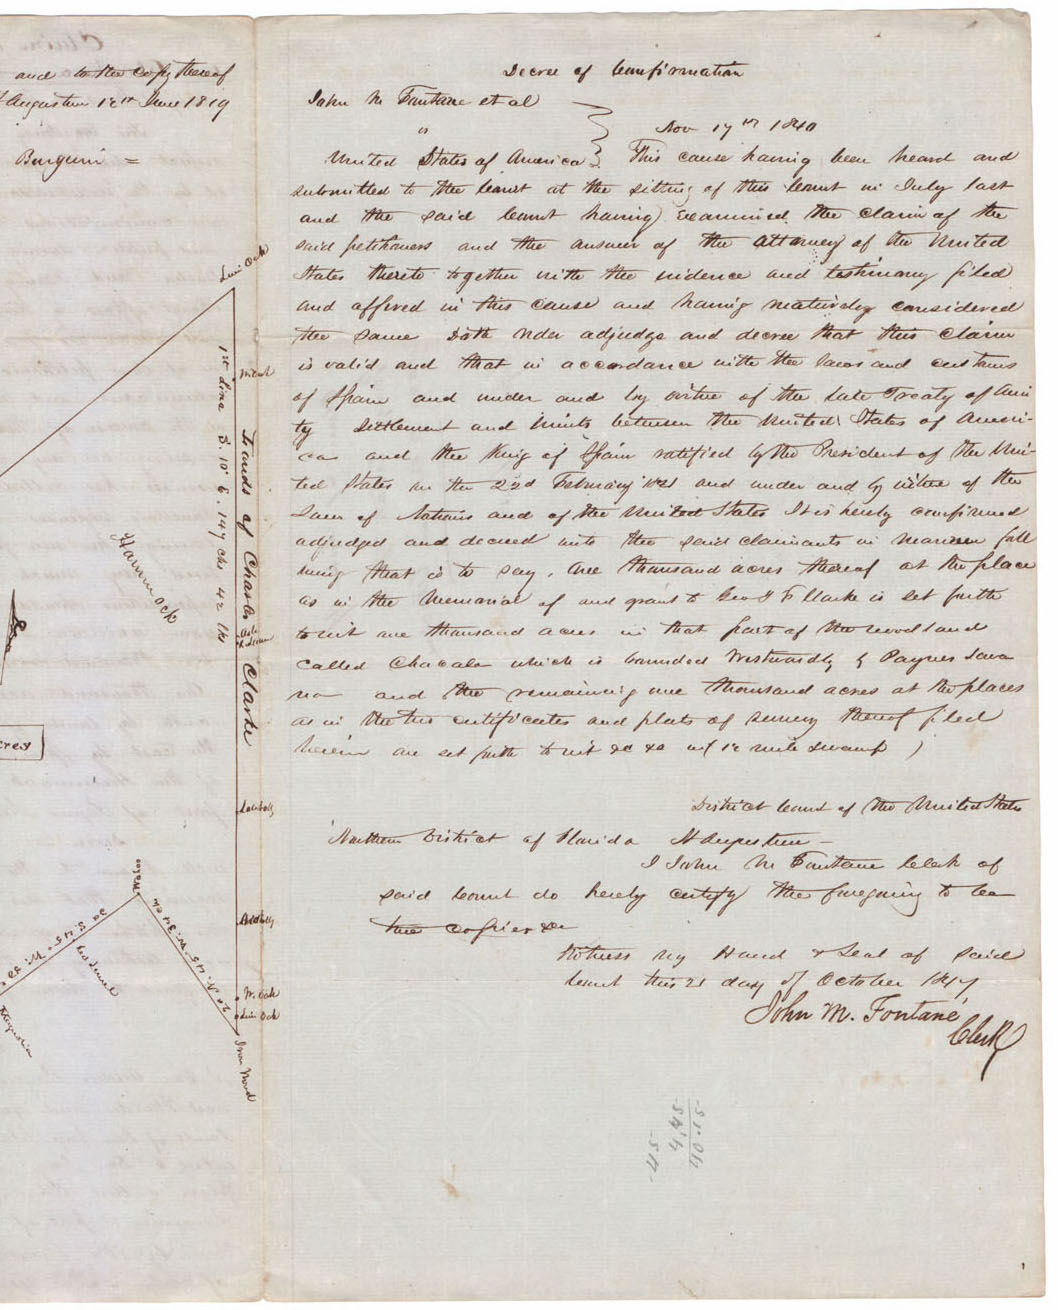 and to the copy thereof
Augustin 12th June 1819
Burguin =
Live Oak
1st Line S. 10° E. 147 chs 42 lks
Lands of Charles Clarke
Hammock
cres
W. Oak
Live Oak
Iron Wood
20 N. 45° W. 34 ch
Magnolia
Decree of Confirmation
John M Fontane et al
vs
Nov 17th 1840
United States of America This cause having been heard and
submitted to the Court at the sitting of this Court in July last
and the said Court having Examined the claim of the
said petitioners and the answer of the Attorney of the United
States thereto together with the evidence and testimony filed
and offered in this cause and having maturely considered
the same Doth order adjudge and decree that this Claim
is valid and that in accordance with the Laws and customs
of Spain and under and by virtue of the Late Treaty of Ami
ty Settlement and Limits between the United States of Ameri-
ca and the King of Spain ratified by the President of the Uni-
ted States on the 22d February 1821 and under and by virtue of the
Laws of Nations and of the United States It is hereby confirmed
adjudged and decreed unto the said claimants in manner foll
owing that is to say, One thousand acres thereof at the place
as in the Memorial of and grant to Geo J F Clarke is set forth
to wit one thousand acres in that part of the woodland
called Chacala which is bounded Westwardly by Paynes Sava
na and the remaining one thousand acres at the places
as in the two certificates and plats of survey thereof filed
herein are set forth to wit &c &c of 12 mile Swamp )
District Court of the United States
Northern District of Florida St Augustine —
I John M Fontane Clerk of
said Court do hereby certify the foregoing to be
true copies &c
Witness my Hand & Seal of said
Court this 21 day of October 1847
John M. Fontané
Clerk